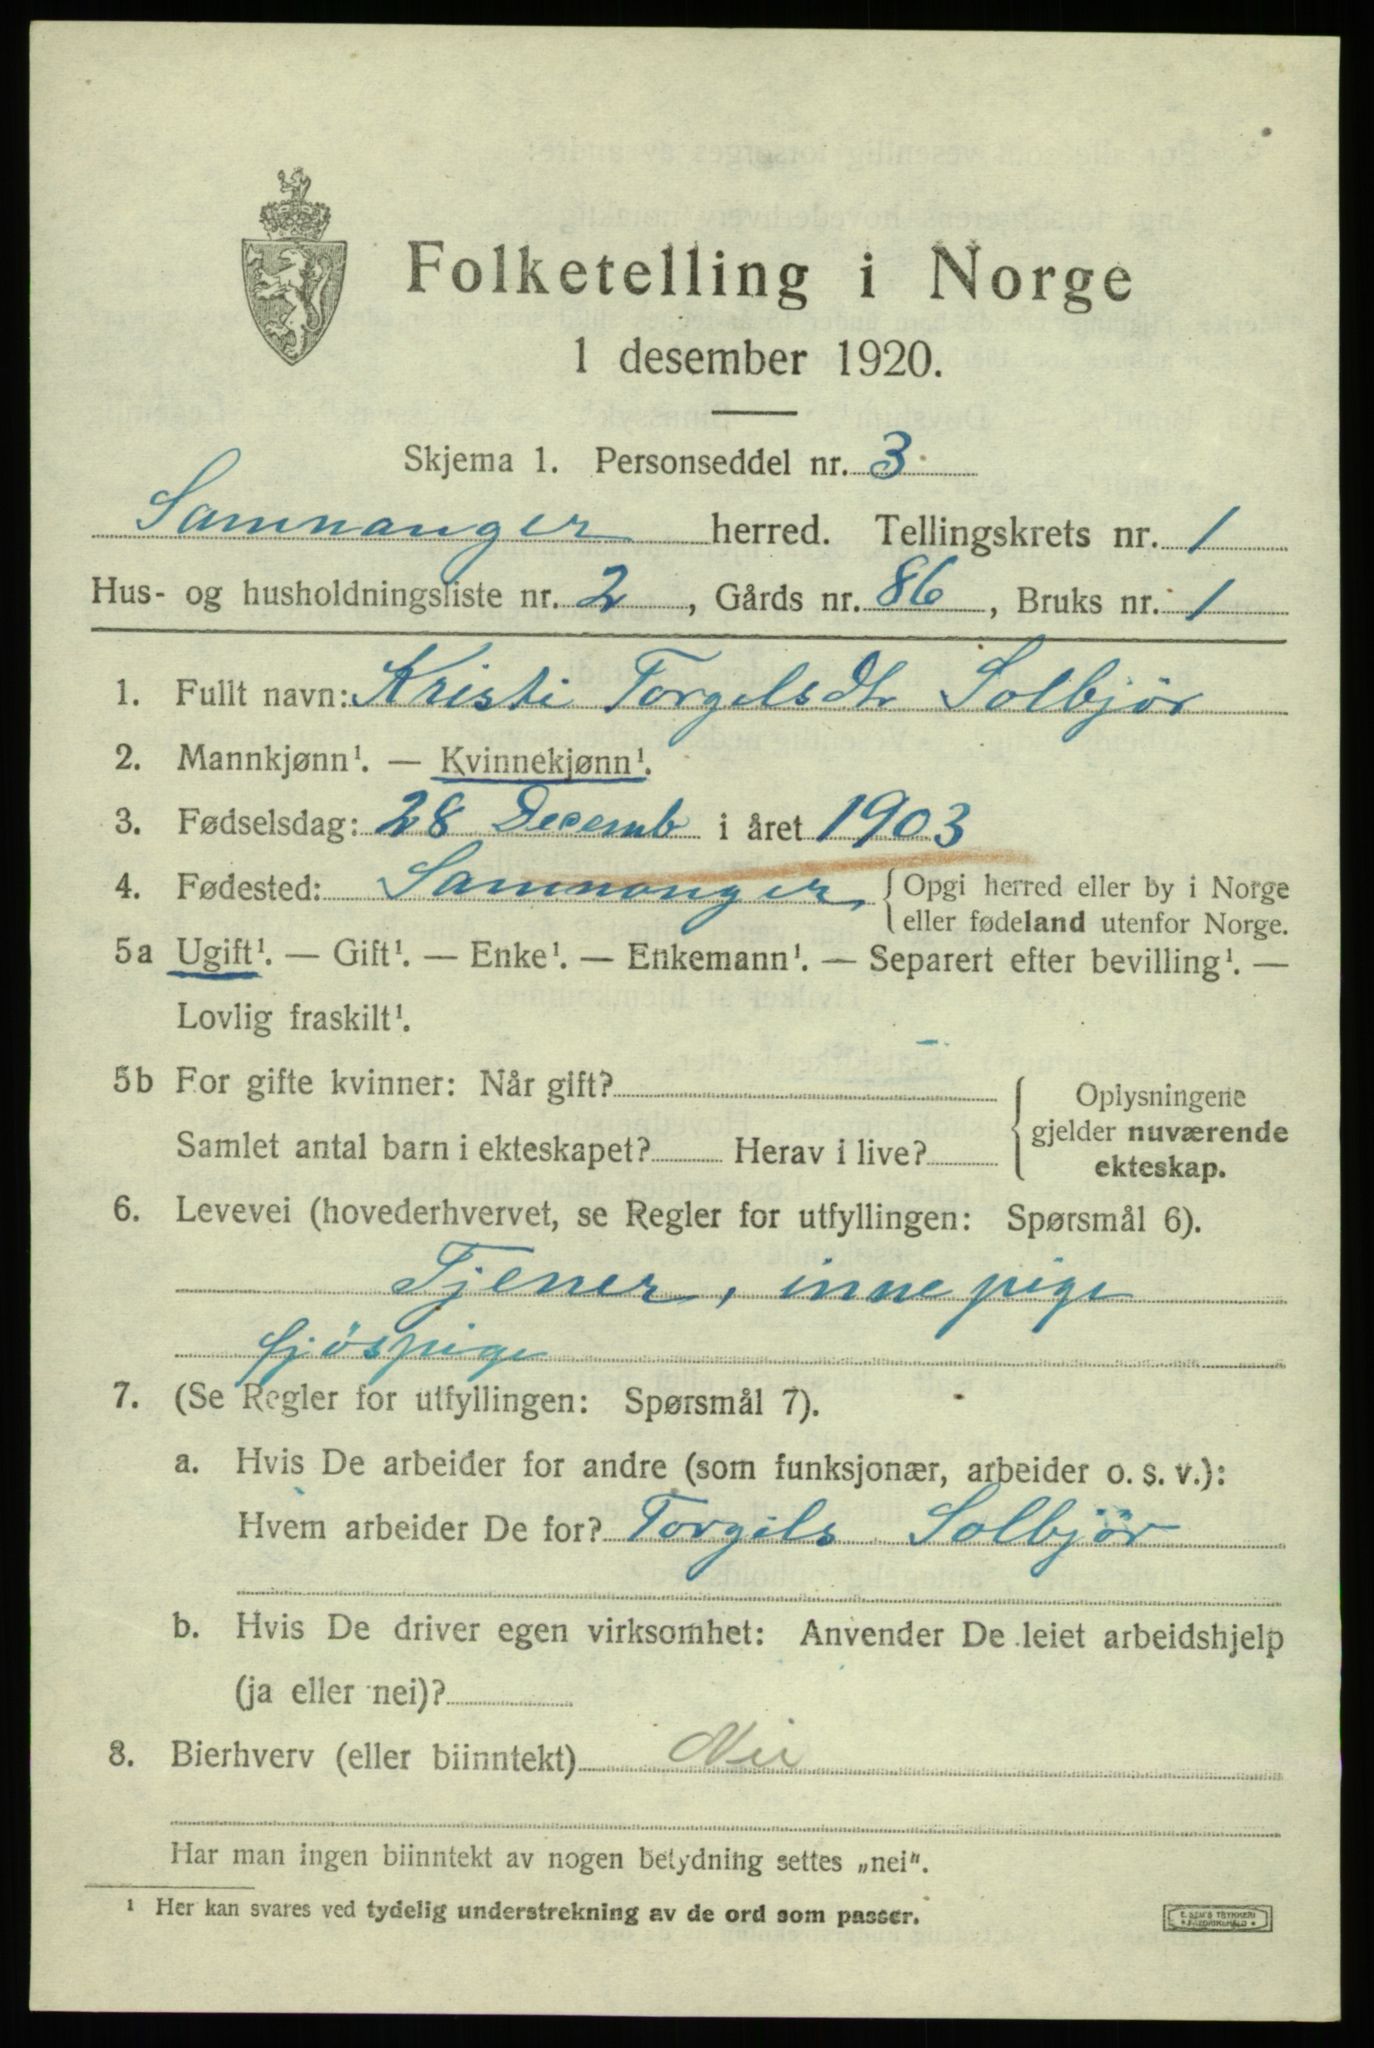 Folketelling i Norge
1 desember 1920.
Skjema 1. Personseddel nr. 3
Samnanger herred. Tellingskrets nr. 1
Hus- og husholdningsliste nr. 2, Gårds nr. 86, Bruks nr. 1
1. Fullt navn: Kristi Torgelsdtr Solbjör
2. Mannkjønn¹. — Kvinnekjønn¹.
3. Fødselsdag: 28 Decemb i året 1903
4. Fødested: Samnanger, { Opgi herred eller by i Norge
eller fødeland utenfor Norge.
5a Ugift¹. — Gift¹. — Enke¹. — Enkemann¹. — Separert efter bevilling¹. —
Lovlig fraskilt¹.
5b For gifte kvinner: Når gift? { Oplysningene
gjelder nuværende
Samlet antal barn i ekteskapet? Herav i live? ekteskap.
6. Levevei (hovederhvervet, se Regler for utfyllingen: Spørsmål 6).
Tjener, innepige
fjöspige
7. (Se Regler for utfyllingen: Spørsmål 7).
a. Hvis De arbeider for andre (som funksjonær, arbeider o. s. v.):
Hvem arbeider De for? Torgils Solbjör
b. Hvis De driver egen virksomhet: Anvender De leiet arbeidshjelp
(ja eller nei)?
8. Bierhverv (eller biinntekt) Nei
Har man ingen biinntekt av nogen betydning settes „nei".
¹ Her kan svares ved tydelig understrekning av de ord som passer.
E. SEM'S TRYKKERI
FREDRIKSHALD